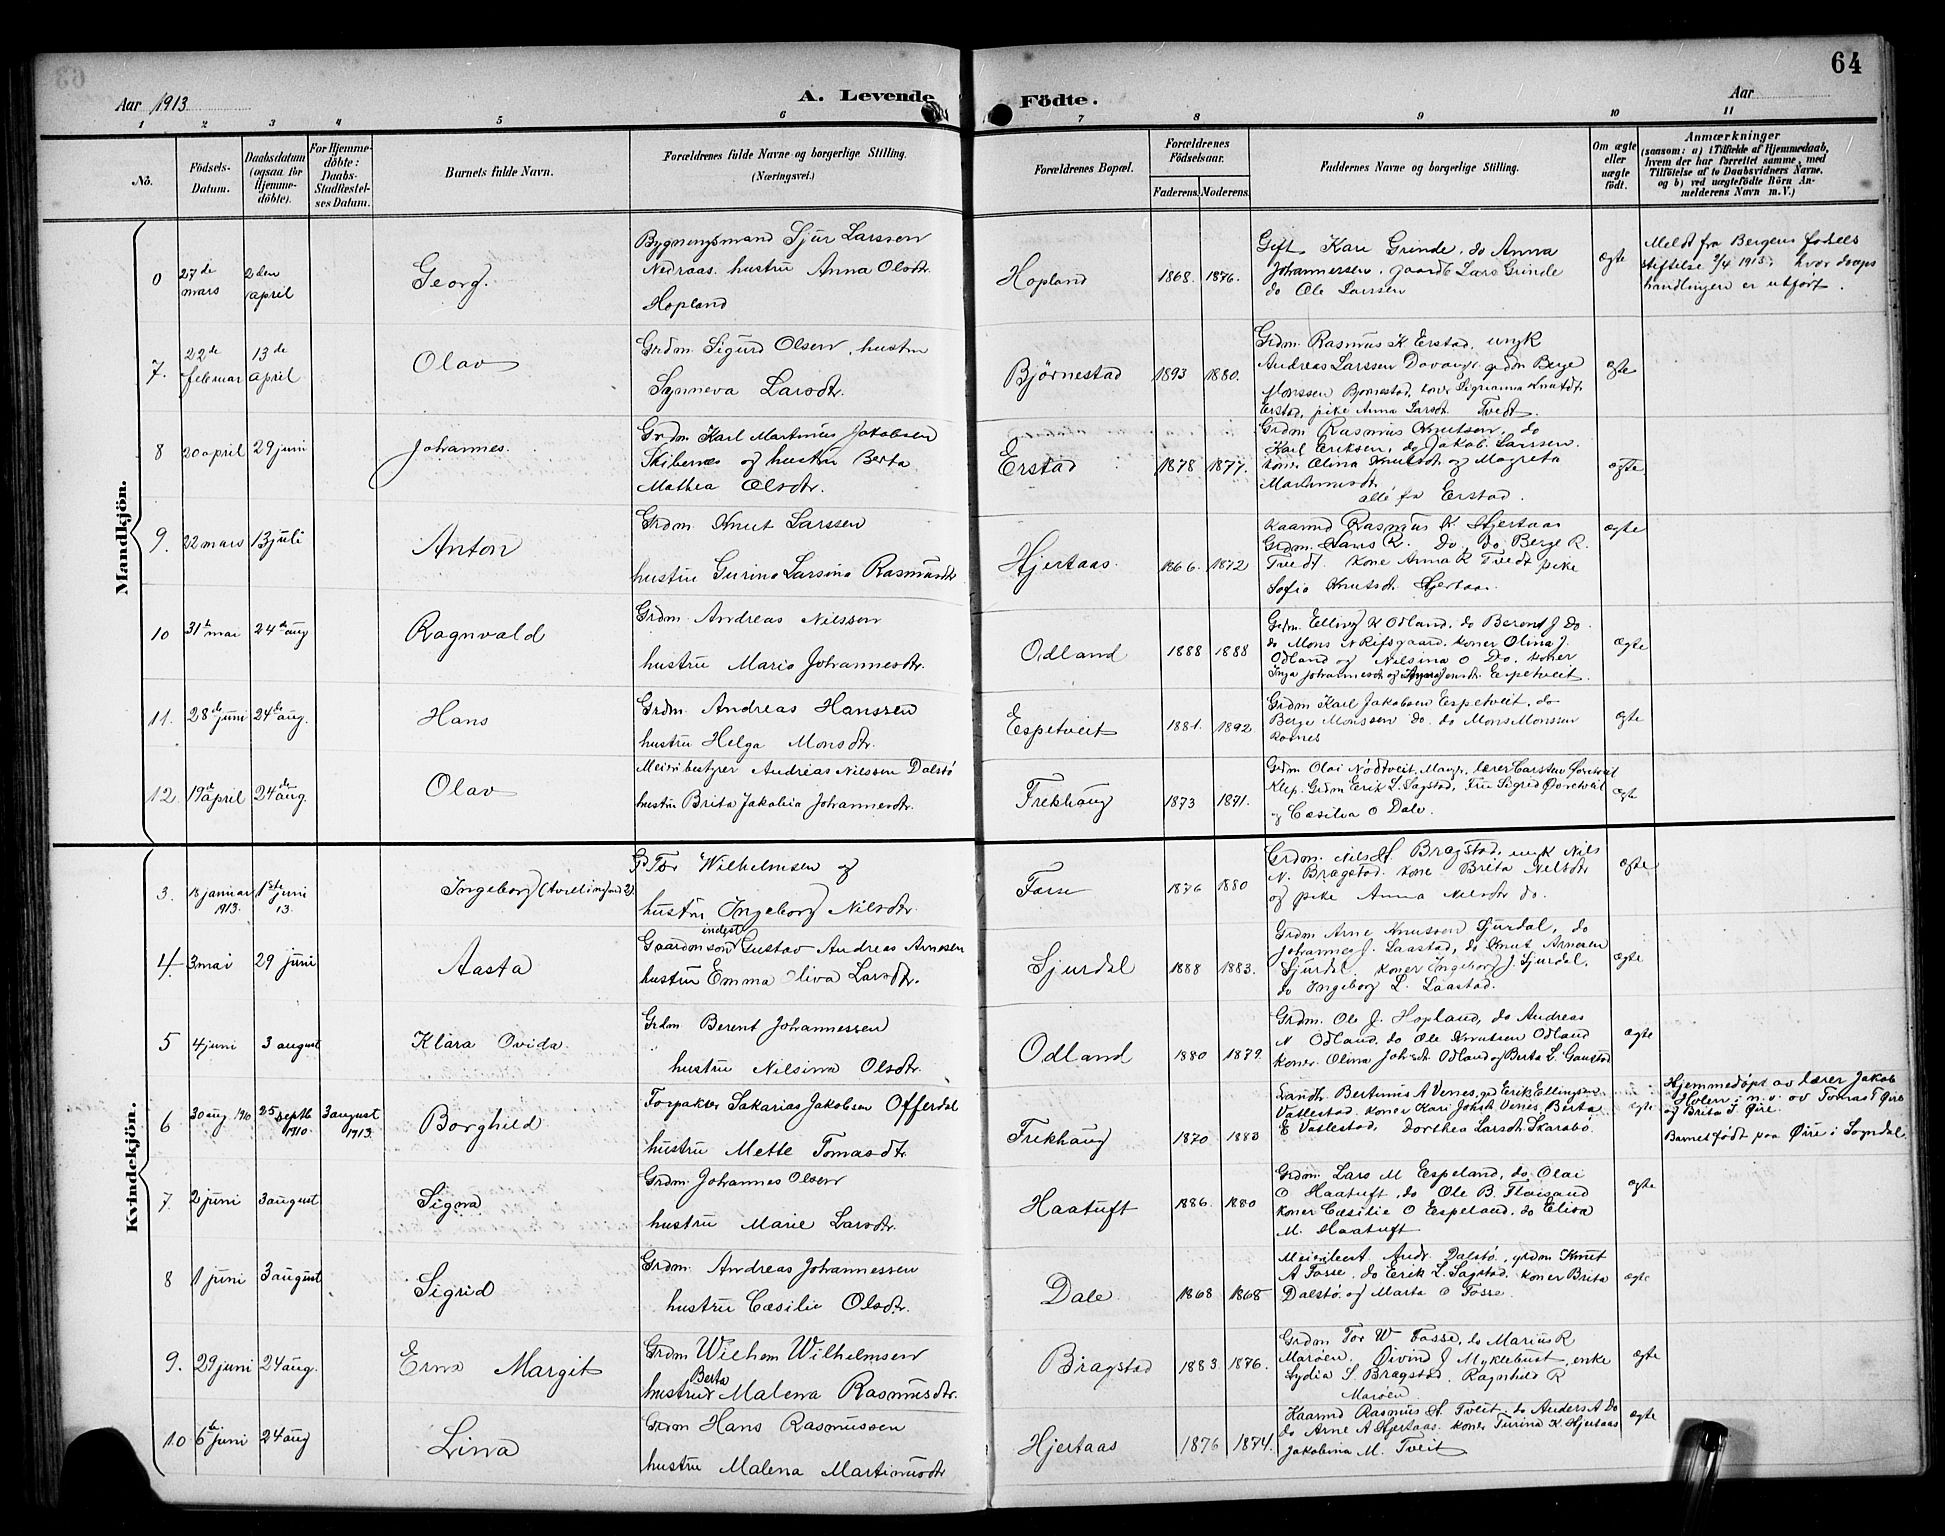 64
Aar 1913
A. Levende Födte.
Aar
1 2 3 4 5 6 7 8 9 10 11
No.
Födsels-Datum.
Daabsdatum (ogsaa for Hjemme-döbte).
For Hjemme-döbte: Daabs-Stadfæstel-ses Datum.
Barnets fulde Navn.
Forældrenes fulde Navne og borgerlige Stilling. (Næringsvei.)
Forældrenes Bopæl.
Forældrenes Födselsaar.
Faderens. Moderens.
Faddernes Navne og borgerlige Stilling.
Om ægte eller uægte födt.
Anmærkninger
(saasom: a) i Tilfælde af Hjemmedaab, hvem der har forrettet samme, med Tilföielse af to Daabsvidners Navne, og b) ved uægtefödte Börn Anmelderens Navn m.V.)
Mandkjön.
0 27de mars 2den april Georg.
Bygningsmand Sjur Larssen
Nedraas. hustru Anna Olsdtr.
Hopland
Hopland 1868. 1876.
Gift Kari Grinde, do Anna
Johannersen. gaardb Lars Grinde
do Ole Larssen
ægte
Meldt fra Bergens fødsels
stiftelse 3/4 1913, hvor daaps
handlingen er utført.
7. 22de februar 13de april Olav
Grdm. Sigurd Olsen, hustru
Synneva Larsdtr.
Bjørnestad 1893 1880.
Grdm. Rasmus K Erstad, ungk
Andreas Larssen Davanger grdm Berge
Monssen Bjørnestad, kone Signanna Knutsdt.
Erstad, pike Anna Larsdt. Tvedt.
ægte
8 20 april 29 juni Johannes.
Grdm Karl Martinus Jakobsen
Skibenes og hustru Berta
Mathea Olsdtr.
Erstad 1878 1877.
Grdm Rasmus Knutsen, do
Karl Eriksen, do Jakob Larssen.
kone Olina Knutsdt og Magreta
Martinusdt
alle fra Erstad.
ægte
9. 22 mars 13 juli Anton
Grdm Knut Larssen
hustru Gurina Larsina Rasmusdtr
Hjertaas. 1866. 1872
Kaarmd Rasmus K Hjertaas
Grdm. Lars R. Do, do Berge R.
Tvedt. kone Anna R Tvedt pike
Sofia Knutsdt Hjertaas.
ægte
10 31te mai 24de aug Ragnvald
Grdm. Andreas Nilsson
hustru Maria Johannesdtr.
Odland 1888 1888
Grdm. Elling K Odland, do Berent J Do
do Mons N Rifsgaard. koner Olina J.
Odland og Nilsina O Do. koner
Inga Johannesdt og Jensdt. Espetveit.
ægte
11. 28de juni 24de aug. Hans
Grdm. Andreas Hanssen
hustru Helga Monsdtr.
Espetveit 1881. 1892
Grdm Karl Jakobsen Espetveit, do
Berge Monssen do. do Mons Monssen
Rosnes
ægte
12. 19de april 24de aug. Olav
Meieribestyrer Andreas Nilssen Dalstø
hustru Brita Jakobia Johannesdtr.
Frekhaug 1873 1871.
Grdm Olai Nødtveit, Mangr. lærer Carsten Øvretveit
Klep. Grdm Erik L. Sagstad, Fru Sigrid Øvretveit
og Cæsilia O Dale.
ægte
Kvindekjön.
3. 18 januar 1913. 1ste juni 13. Ingeborg (tvillingfød 2)
G. Tor Wilhelmsen og
hustru Ingeborg Nilsdtr.
Fosse 1876 1880
Grdm. Nils H. Bragstad, ungk Nils
N. Bragstad. kone Brita Nilsdtr
og pike Anna Nilsdtr do.
ægte
4. 3 mai 29 juni Aasta
indest
Gaardmson Gustav Andreas Arnesen
hustru Emma Oliva Larsdtr.
Sjurdal 1888 1883.
Grdm Arne Knutsen Sjurdal, do
Johannes J. Laastad, do Knut Arnesen
Sjurdal. koner Ingeborg J. Sjurdal,
do Ingeborg L. Laastad.
ægte
5 4 juni 3 august Klara Ovida.
Grdm. Berent Johannessen
hustru Nilsina Olsdtr.
Odland 1880 1879.
Grdm. Ole J. Hopland, do Andreas
N Odland, do Ole Knutsen Odland
koner. Olina Johsdt Odland og Berta L. Gaustad
ægte
6 30 aug 1910 25 septb 1910. 3 august 1913. Borghild
Forpakter Sakarias Jakobsen Offerdal
hustru Mette Tomasdtr.
Frekhaug 1870 1883
Landh. Bertinus A Venes, gd Erik Ellingsen
Vatlestad. koner Kari Johsdt Venes, Berta
E Vatlestad, Dorthea Larsdt. Skarabø.
ægte
Hjemmedøpt av lærer Jakob
Holen i n.v. av Tomas T Øire
og Brita T. Øire.
Barnet født paa Øire i Sogndal.
7. 2 juni 3 august Signa
Grdm. Johannes Olsen
hustru Marie Larsdtr.
Haatuft 1886. 1880
Grdm. Lars M Espeland, do Olai
O Haatuft, do Ole B. Fløisand
koner Cæsilie O Espeland, do Elisa
M. Haatuft
ægte
8 1 juni 3 august Sigrid
Grdm. Andreas Johannessen
hustru Cæsilie Olsdtr.
Dale 1868 1868
Meieribest. Andr. Dalstø, grdm Knut
A Fosse, do Erik L. Sagstad. koner Brita
Dalstø. og Marta O Fosse.
ægte
9. 29 juni 24 aug. Erna Margit
Grdm Wilhem Wilhelmsen
Berta
hustru Malena Rasmusdtr.
Bragstad 1883. 1876.
Grdm Tor W Fosse, do Marius R
Marøen. Øivind J Myklebust, enke
Lydia S. Bragstad, Ragnhild R
Marøen.
ægte
10 6te juni 24 aug Lina
Grdm Hans Rasmussen
hustru Malena Martinusdtr
Hjertaas 1876 1874.
Kaarmd Rasmus H. Tveit. do Anders A Do
do Arne A Hjertaas. koner Turina K. Hjertaas
Jakobina M. Tveit
ægte